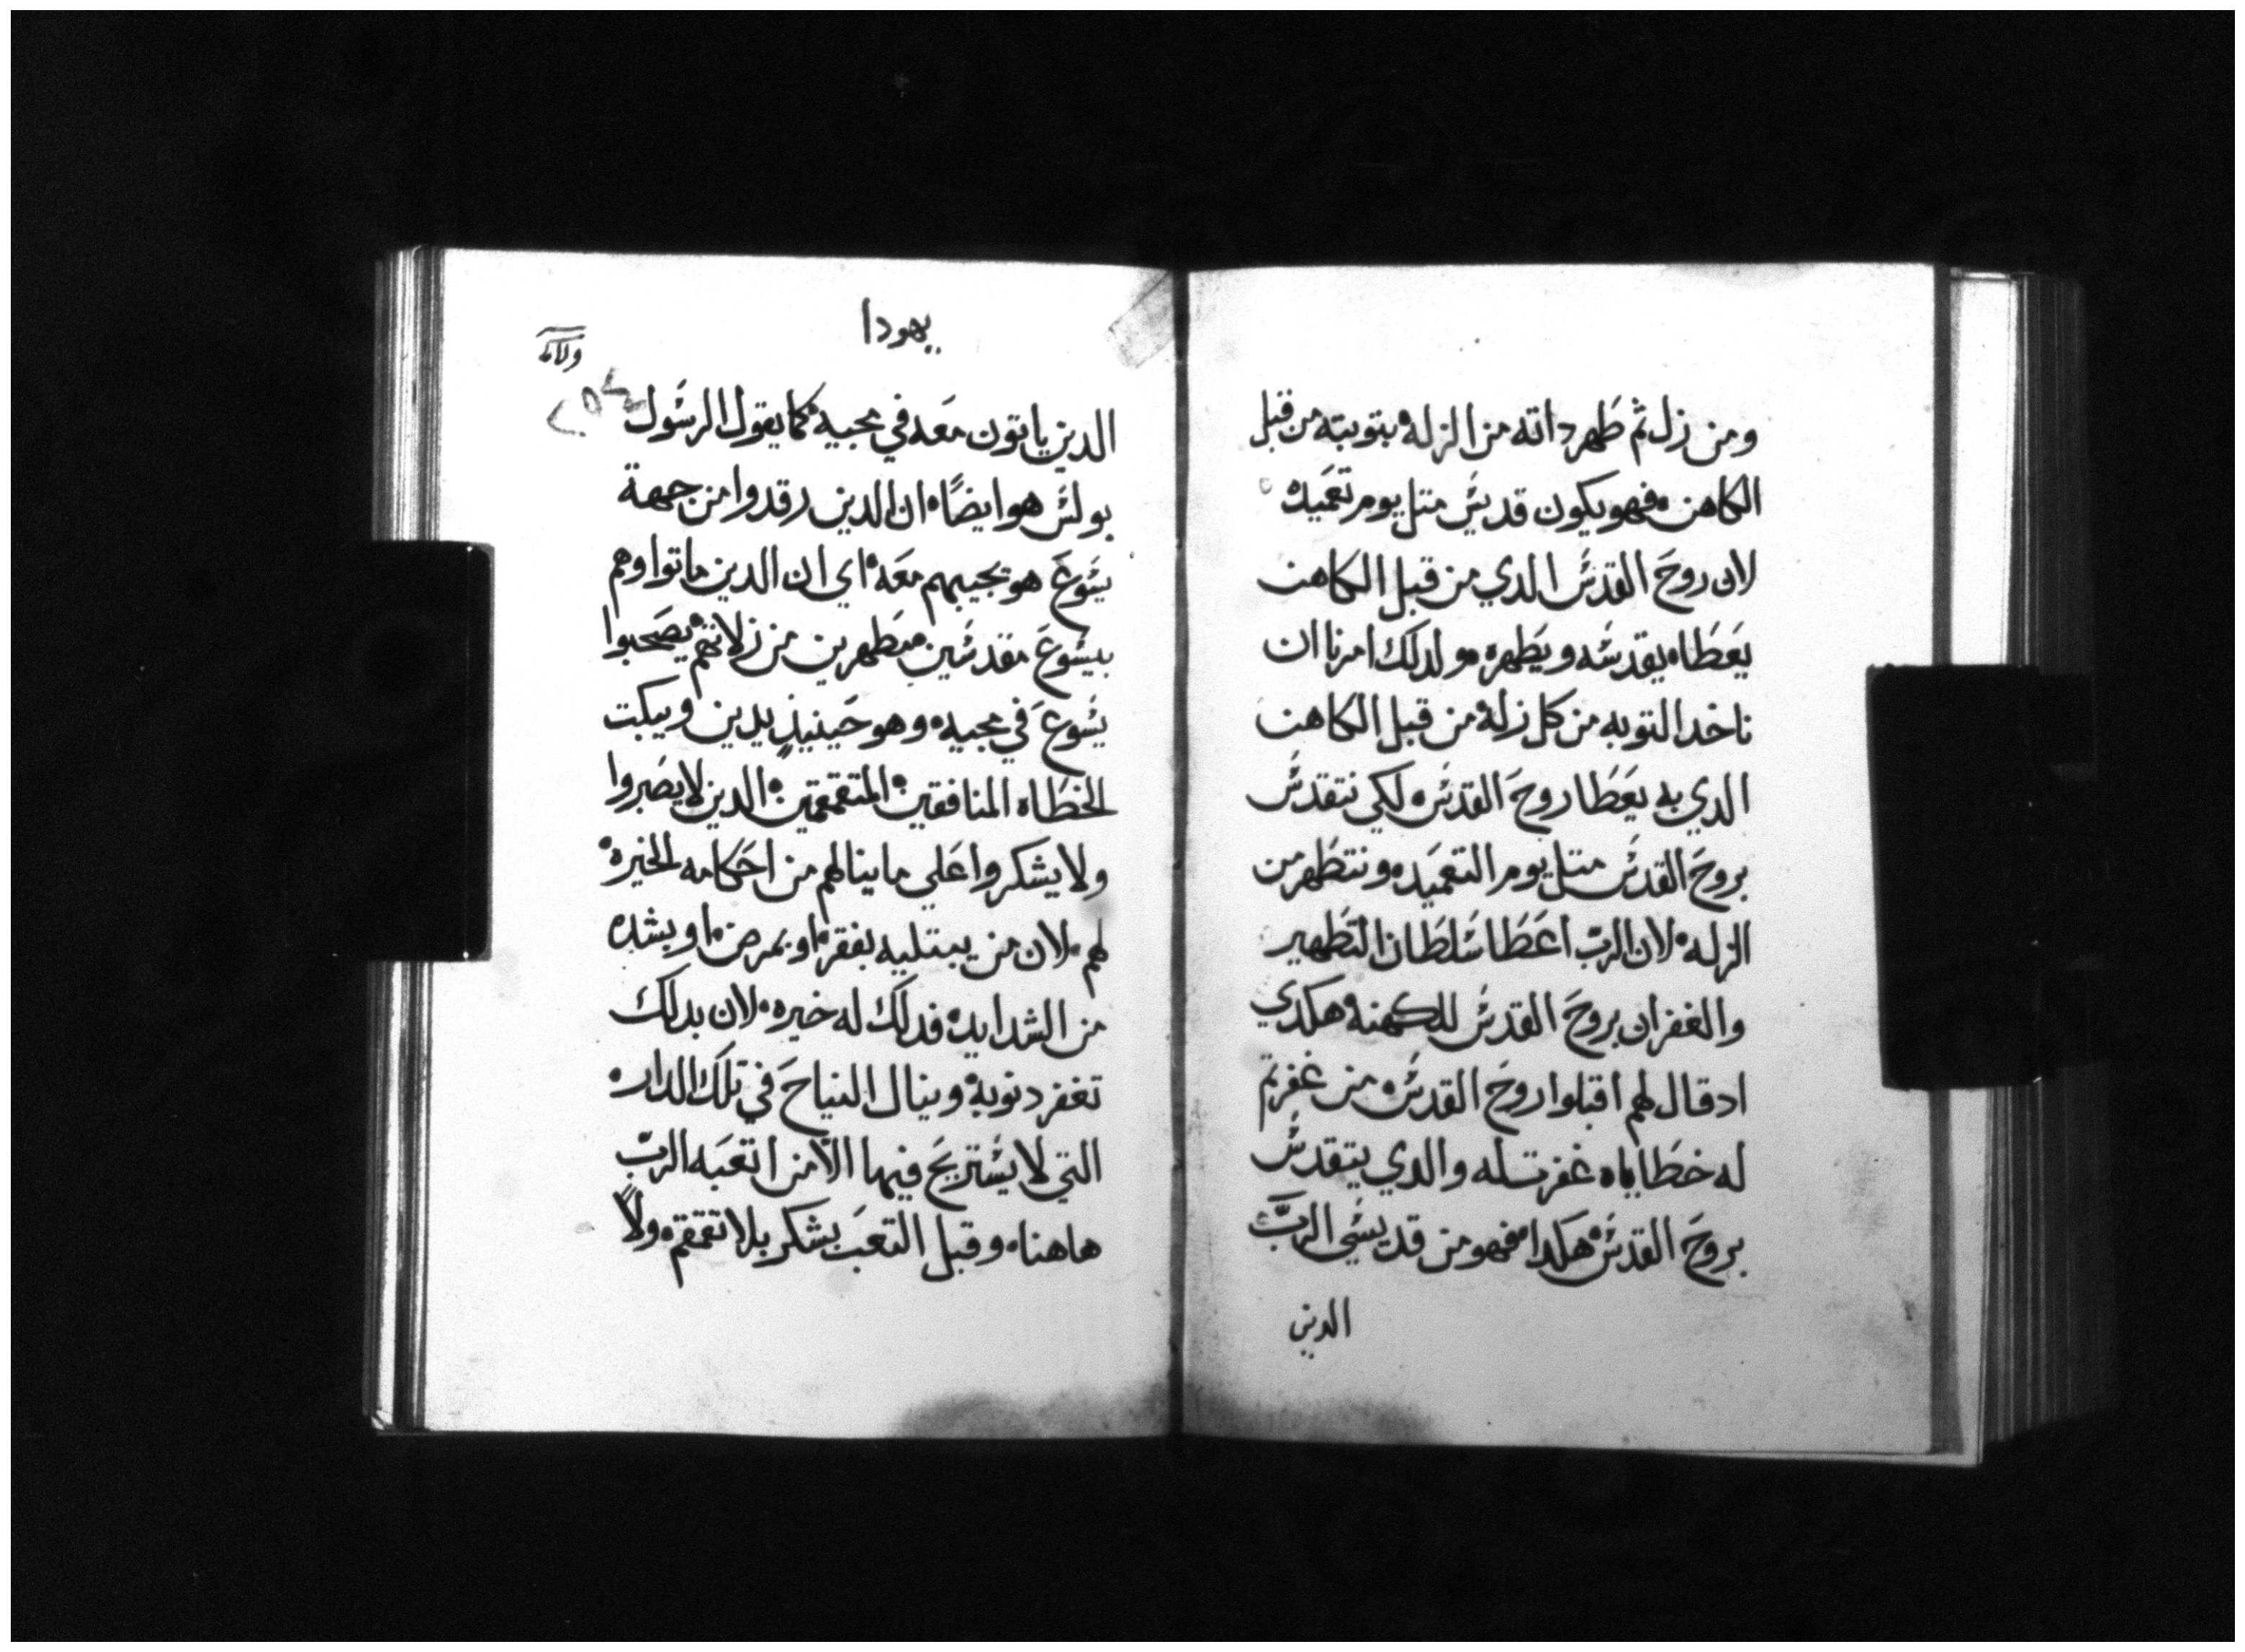 ومن زل ثم طهر داته من الزله بتوبته من قبل
الكاهن فهو يكون قديس متل يوم تعميده
لان روح القدس الدي من قبل الكاهن
يعطاه يقدسه ويطهره ولدلك امرنا ان
ناخد التوبه من كل زله من قبل الكاهن
الدي به يعطا روح القدس لكي نتقدس
بروح القدس متل يوم التعميد ونتطهر من
الزله لان الرب اعطا سلطان التطهير
والغفران بروح القدس للكهنه هكدي
ادقال لهم اقبلوا روح القدس من غفرتم
له خطاياه غفرت له والدي يتقدس
بروح القدس هكدا فهو من قديسي الرب
الدين
يهودا
الدين ياتون معه في مجيه كما يقول الرسول
بولس هو ايضًا ان الدين رقدوا من جهة
يسوع هو يجيبهم معه اي ان الدين ماتوا وهم
بيسوع مقدسين متطهرين من زلاتهم يصحبوا
يسوع في مجيه وهو حينيذٍ يدين ويبكت
الخطاه المنافقين المتقمقمين الدين لا يصبروا
ولا يشكروا علي ما ينالهم من احكامه الخيره
لهم لان من يبتليه بفقر او بمرض او بشده
من الشدايد فدلك له خيره لان بدلك
تغفر دنوبه وينال النياح في تلك الدار
التي لا يستريح فيها الا من اتعبه الرب
هاهنا وقبل التعب بشكر بلا تقمقم ولا